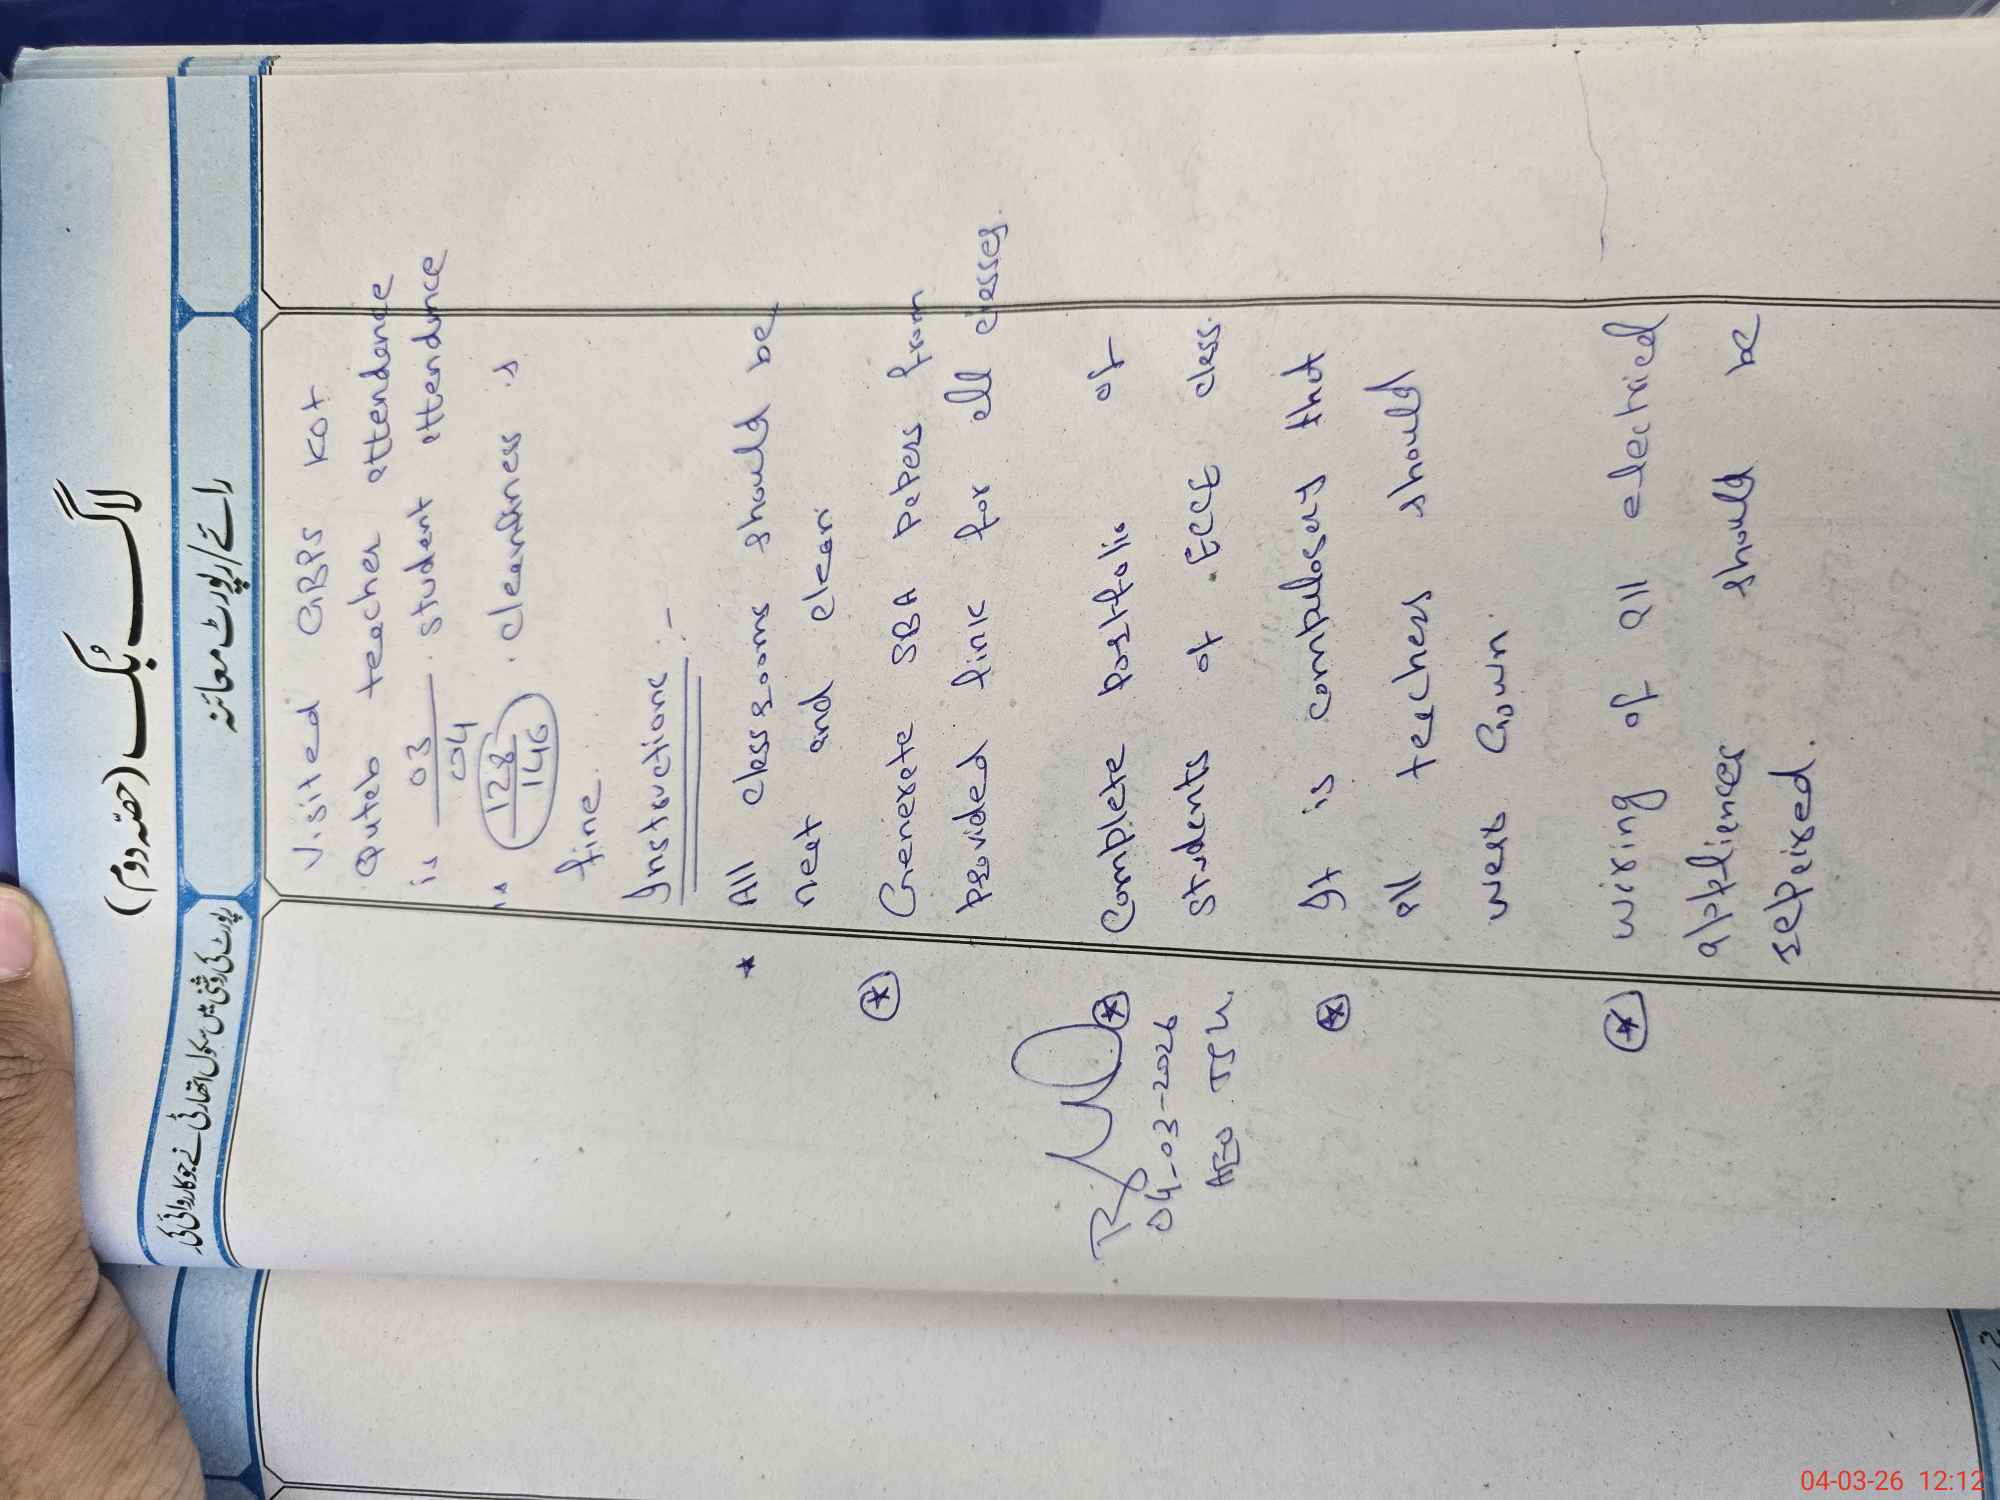 لاگ بُک (حصّہ دوم)
رائے/رپورٹ معائنہ
رپورٹ کی روشنی میں سکول اتھارٹی نے جو کاروائی کی
Visited GBPS Kot
Qutab teacher attendance
is 03/04 . student attendance
is 128/146 . cleanliness is
fine.
Instructions :-
* All classrooms should be
neat and clean
* Generate SBA papers from
provided link for all classes.
* Complete portfolio of
students of ECCE class.
* It is compulsory that
all teachers should
wear Gown
* wiring of all electrical
appliences should be
repaired.
04-03-2026
AEO JSK.
04-03-26 12:12